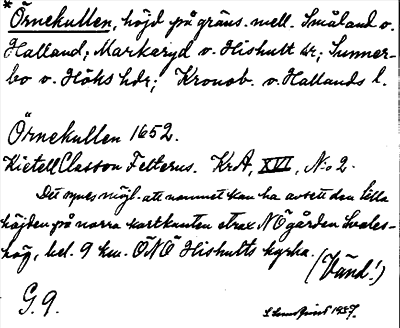 * Örnekullen, höjd på gräns. mell. Småland o.
Halland; Markaryd o. Hishult sr; Sunner-
bo o. Höks hdr; Kronob. o. Hallands l.
Örnekullen 1652.
Kietell Classon Felterus. KrA, XVI, N:o 2.
Det synes möjl. att namnet kan ha avsett den lilla
höjden på norra kartkanten strax NÖ gården Svales-
hög, bel. 9 km. ÖNÖ Hishults kyrka.
(Vänd!)
G. 9.
1937.